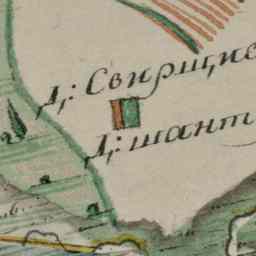 Д: Свирщие
Д: шант